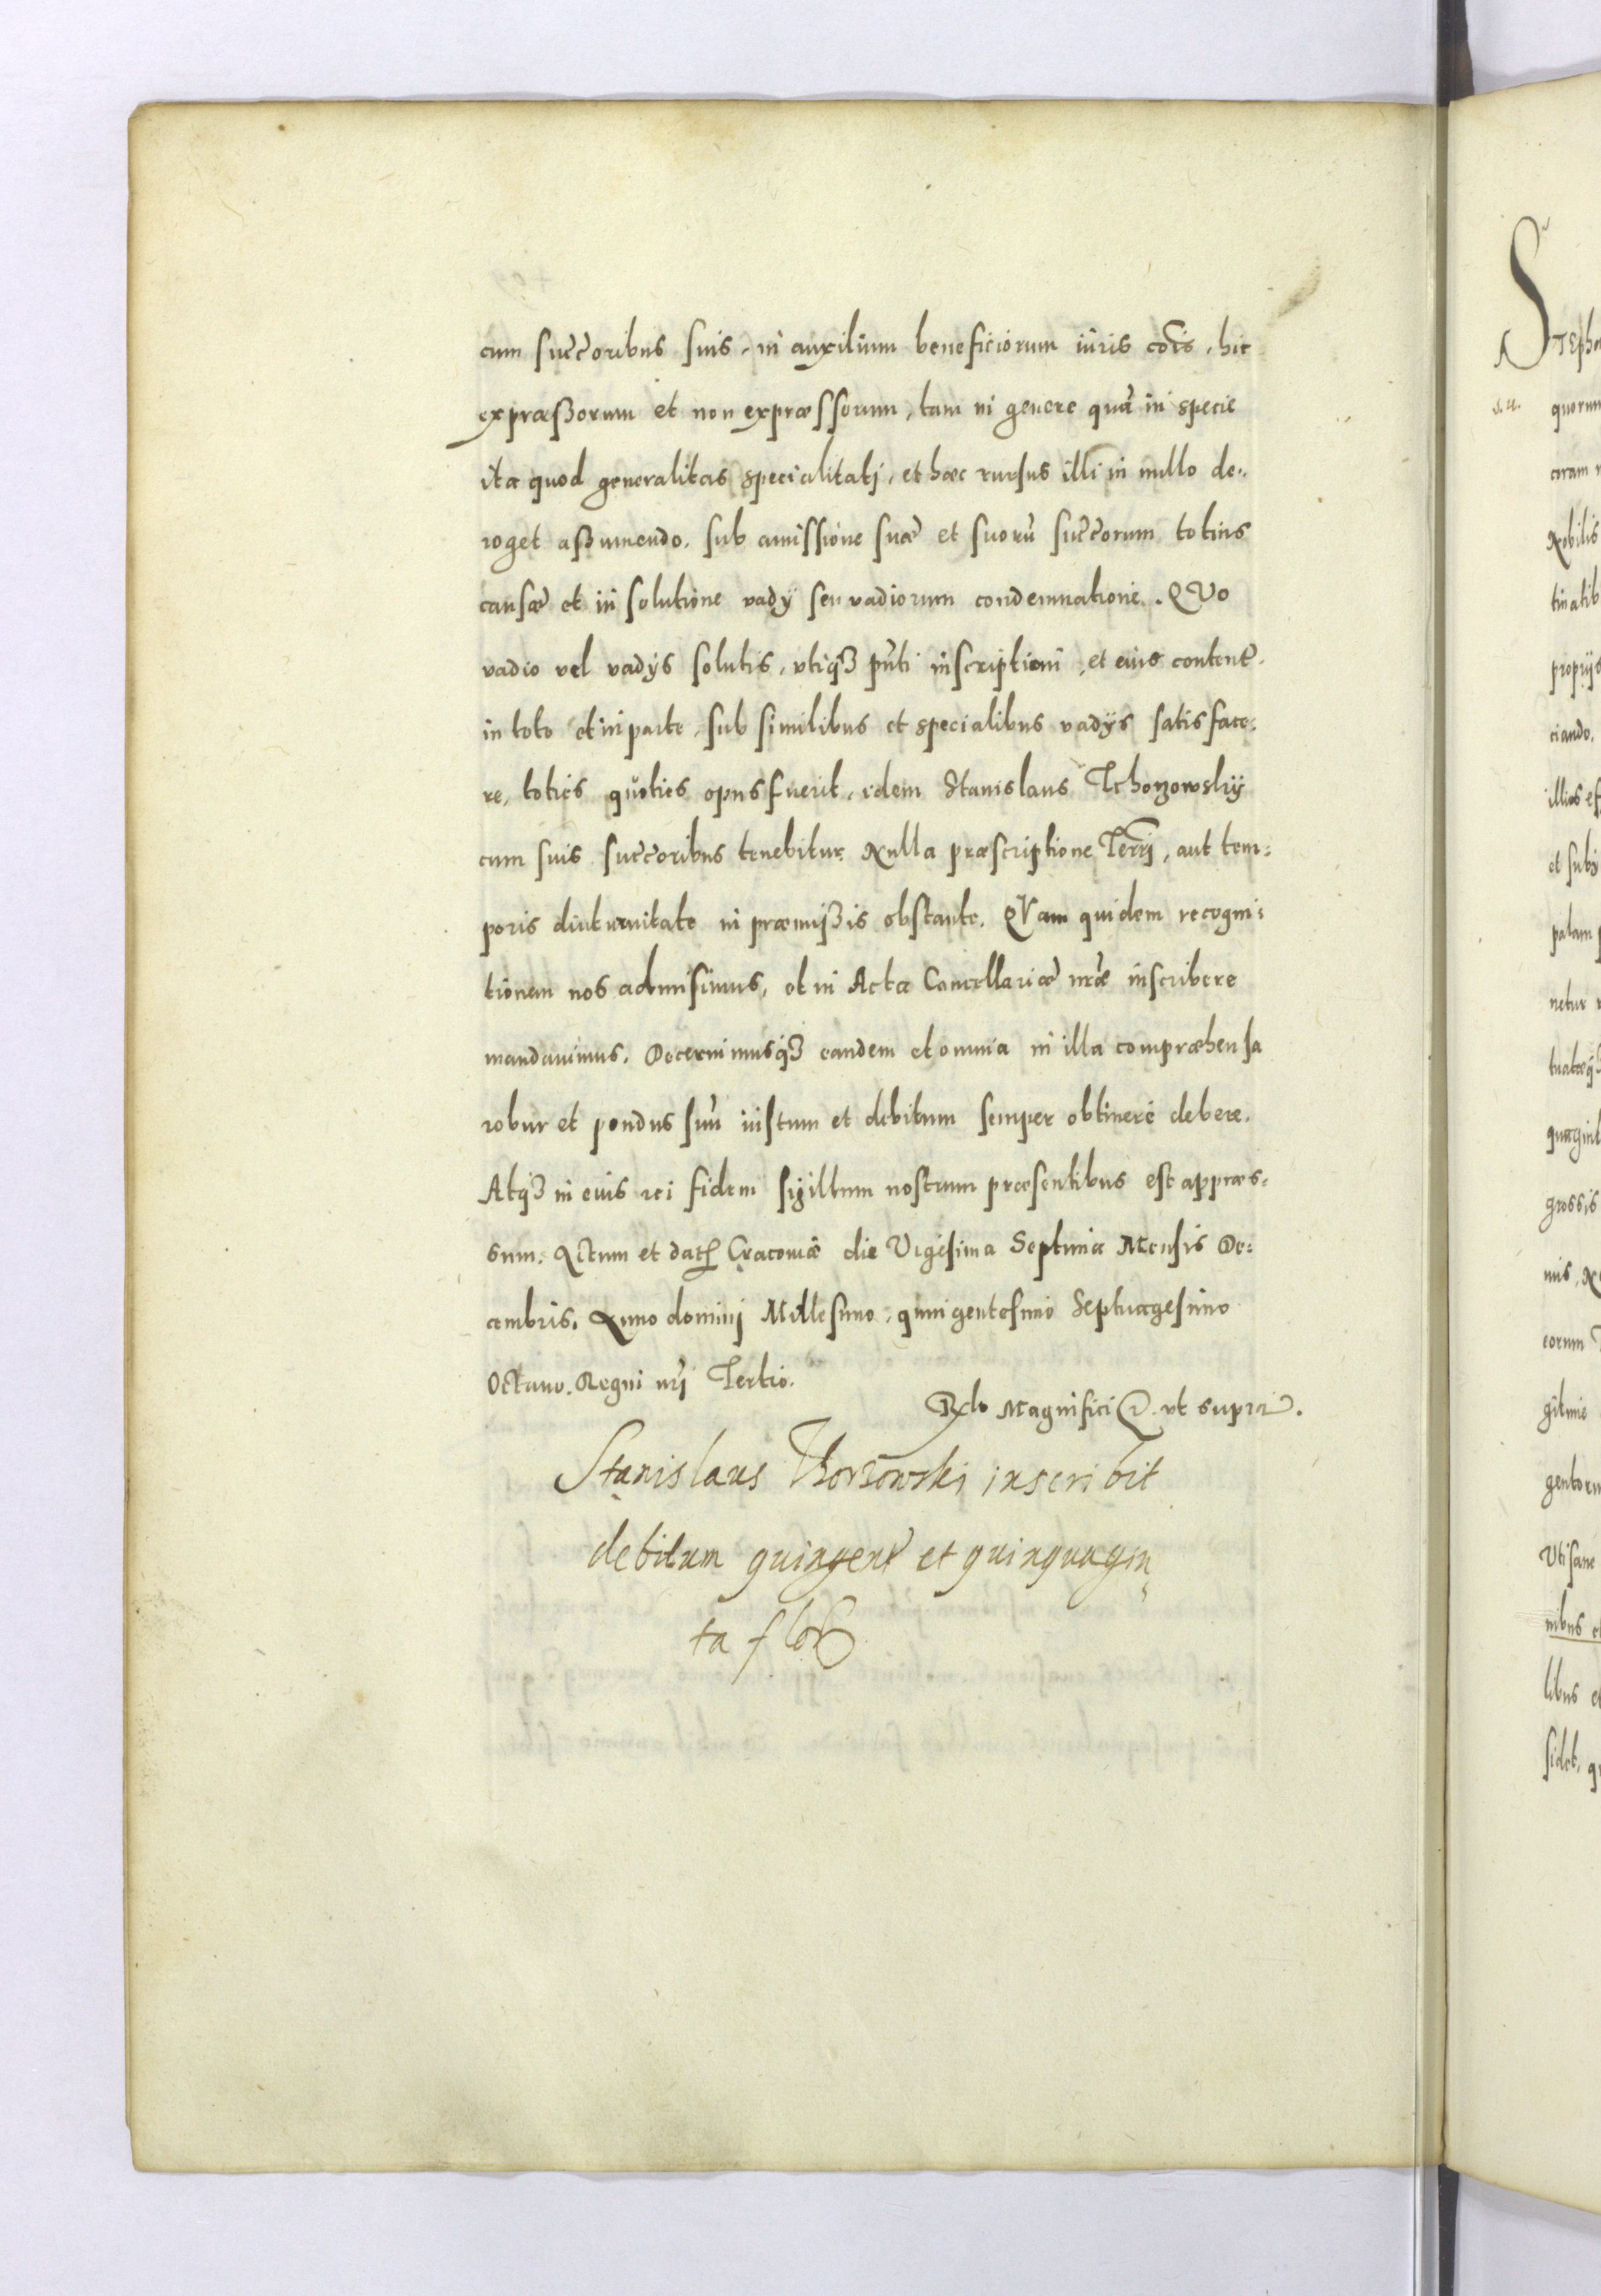 cum succ̄oribus suis, in auxilium beneficiorum iuris cōis, hic
expræssorum et non expræssorum, tam in genere quā in specie
ita quod generalitas specialitatj, et hæc rursus illi in nullo de-
roget assumendo. sub amissione suæ et suorū succ̄orum totius
causæ et in solutione vadÿ seu vadiorum condemnatione. QVo
vadio vel vadÿs solutis, vtiqȝ pn̄ti inscriptioni, et eius content̄.
in toto et in parte, sub similibus et specialibus vadÿs satisface-
re, toties quoties opus fuerit, idem Stanislaus Tchorzowskÿ
cum suis succ̄oribus tenebitur. Nulla præscriptione Terr̄j, aut tem-
poris diuturnitate in præmissis obstante. QVam quidem recogni-
tionem nos admisimus, et in Acta Cancellariæ nr̄æ inscribere
mandauimus. Decernimusqȝ eandem et omnia in illa compræhensa
robur et pondus suū iustum et debitum semper obtinere debere.
Atqȝ in eius rei fidem sigillum nostrum præsentibus est appræs-
sum. Actum et datꝭ Cracouiæ die Vigesima Septima Mensis De-
cembris. Anno dominj Millesimo, quingentesimo Septuagesimo
Octauo. Regni nr̄j Tertio.
Rl̄o Magnifici &c. vt supra.
Stanislaus Thorzowski inscribit
debitum quingent̄ et quinquagin
ta flor
STepha
s. u.
quorum
coram n
Nobilis
tinatib
proprijs
ciando.
illius ef
et subi
palam p
netur
tuatæqȝ
quagint
grossis
nis, N
eorum
gitime
gentoru
Vti sane
nibus et
libus et
sidet, q